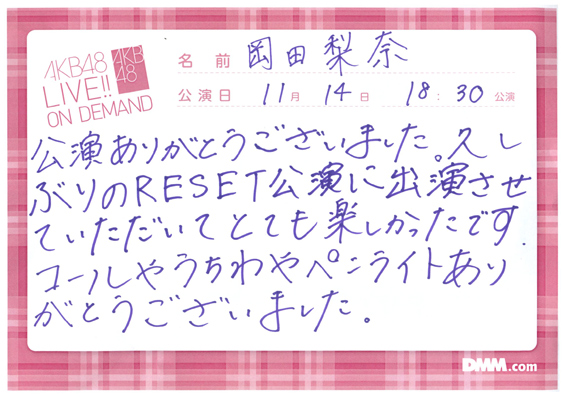 AKB48
LIVE!!
ON DEMAND
AKB
48
名前 岡田梨奈
公演日 11月 14日 18:30公演
公演ありがとうございました。久し
ぶりのRESET公演に出演させ
ていただいてとても楽しかったです.
コールやうちわやペンライトあり
がとうございました。
DMM.com